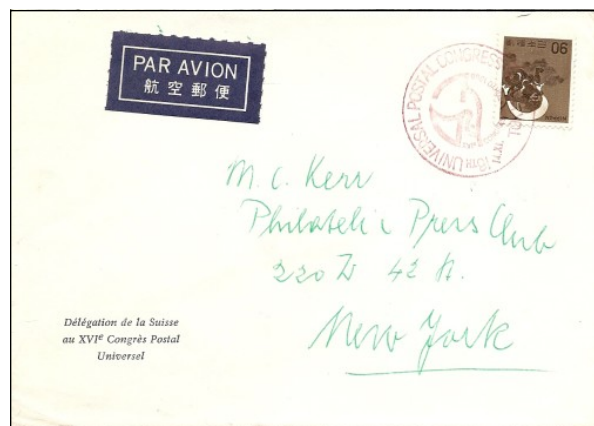 PAR AVION
航空郵便
90
16TH UNIVERSAL POSTAL CONGRESS
M. C. Kerr
Philatelic Press Club
220 W 42 St.
New York
Délégation de la Suisse
au XVIe Congrès Postal
Universel